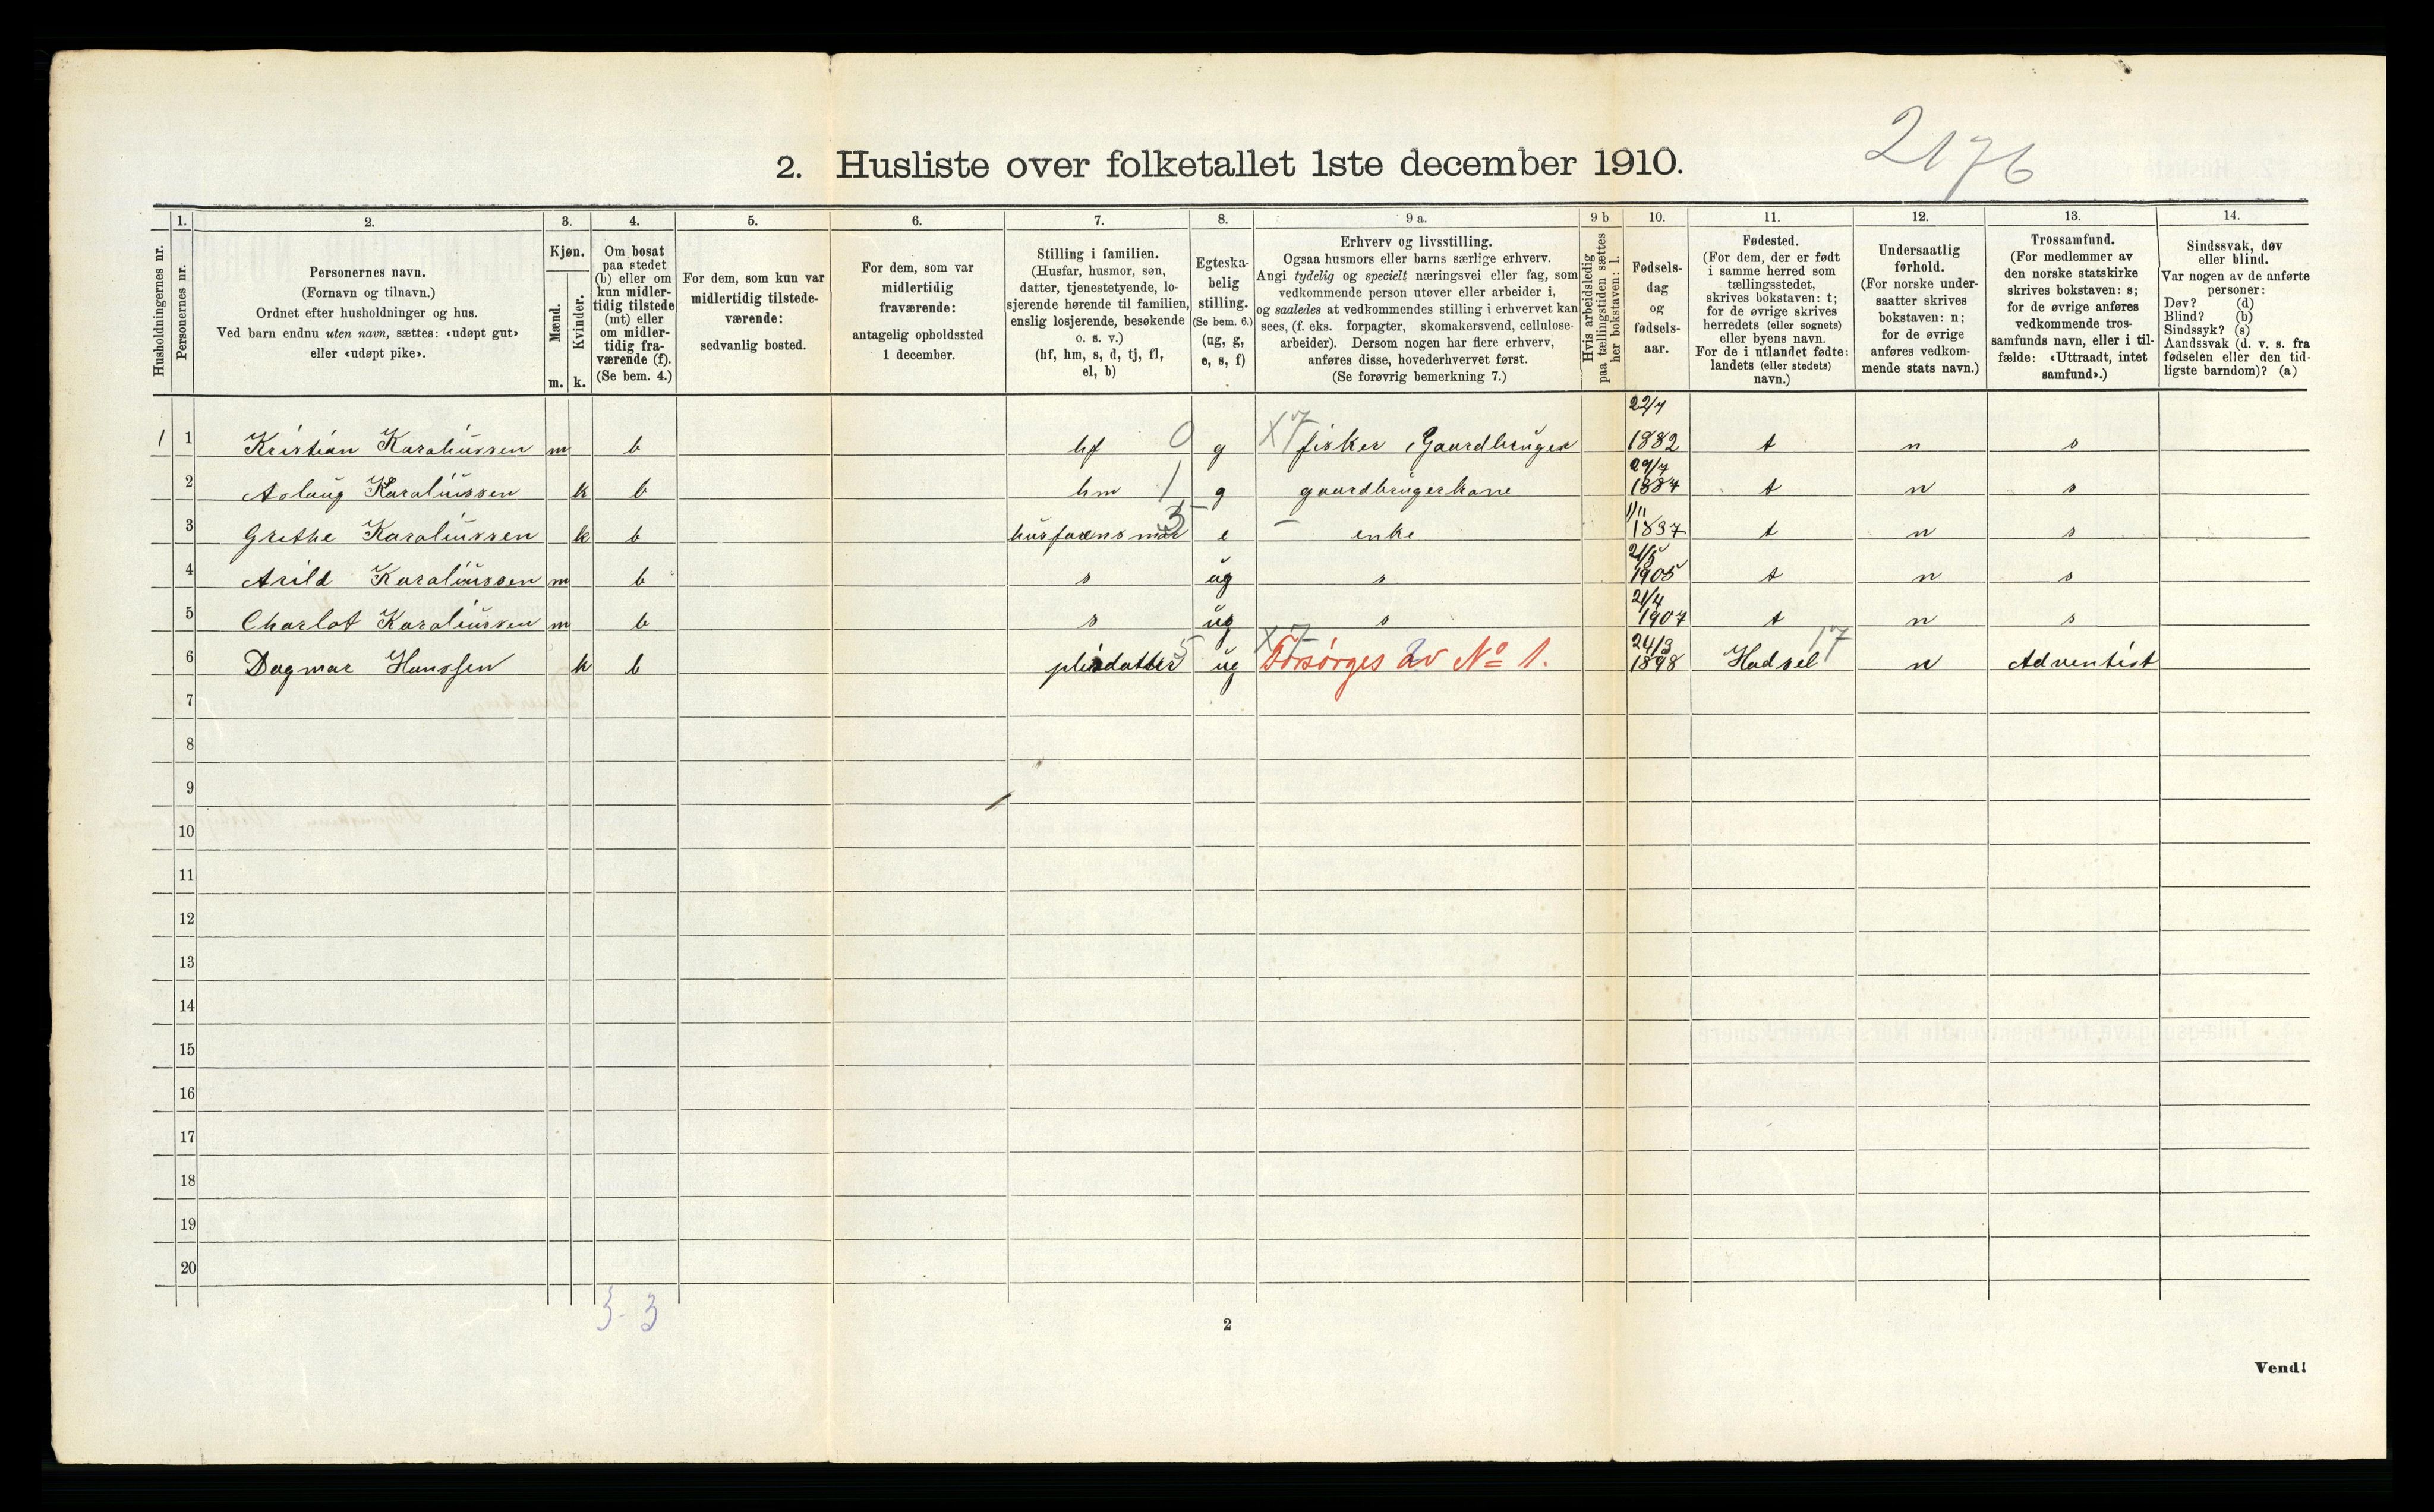 2176
2. Husliste over folketallet 1ste december 1910.
Husholdningernes nr.
1.
Personernes nr.
2.
Personernes navn.
(Fornavn og tilnavn.)
Ordnet efter husholdninger og hus.
Ved barn endnu uten navn, sættes: «udøpt gut»
eller «udøpt pike».
3.
Kjøn.
Mænd.
Kvinder.
m. k.
4.
Om bosat
paa stedet
(b) eller om
kun midler-
tidig tilstede
(mt) eller
om midler-
tidig fra-
værende (f).
(Se bem. 4.)
5.
For dem, som kun var
midlertidig tilstede-
værende:
sedvanlig bosted.
6.
For dem, som var
midlertidig
fraværende:
antagelig opholdssted
1 december.
7.
Stilling i familien.
(Husfar, husmor, søn,
datter, tjenestetyende, lo-
sjerende hørende til familien,
enslig losjerende, besøkende
o. s. v.)
(hf, hm, s, d, tj, fl,
el, b)
8.
Egteska-
belig
stilling.
(Se bem. 6.)
(ug, g,
e, s, f)
9 a.
Erhverv og livsstilling.
Ogsaa husmors eller barns særlige erhverv.
Angi tydelig og specielt næringsvei eller fag, som
vedkommende person utøver eller arbeider i,
og saaledes at vedkommendes stilling i erhvervet kan
sees, (f. eks. forpagter, skomakersvend, cellulose-
arbeider). Dersom nogen har flere erhverv,
anføres disse, hovederhvervet først.
(Se forøvrig bemerkning 7.)
9 b
Hvis arbeidsledig
paa tællingstiden sættes
her bokstaven: l.
10.
Fødsels-
dag
og
fødsels-
aar.
11.
Fødested.
(For dem, der er født
i samme herred som
tællingsstedet,
skrives bokstaven: t;
for de øvrige skrives
herredets (eller sognets)
eller byens navn.
For de i utlandet fødte:
landets (eller stedets)
navn.)
12.
Undersaatlig
forhold.
(For norske under-
saatter skrives
bokstaven: n;
for de øvrige
anføres vedkom-
mende stats navn.)
13.
Trossamfund.
(For medlemmer av
den norske statskirke
skrives bokstaven: s;
for de øvrige anføres
vedkommende tros-
samfunds navn, eller i til-
fælde: «Uttraadt, intet
samfund».)
14.
Sindssvak, døv
eller blind.
Var nogen av de anførte
personer:
Døv? (d)
Blind? (b)
Sindssyk? (s)
Aandssvak (d. v. s. fra
fødselen eller den tid-
ligste barndom)? (a)
1 1 Kristian Karoliussen m b hf 0 g X7 fisker, Gaardbruger 22/7 1882 t n s
2 Aslaug Karoliussen k b hm 1 g gaardbrugerkone 29/7 1884 t n s
3 Grethe Karoliussen k b husfarens mor 3 e – enke 1/11 1837 t n s
4 Arild Karoliussen m b s ug s 21/5 1905 t n s
5 Charlot Karoliussen m b s ug s 21/4 1907 t n s
6 Dagmar Hanssen k b pleiedatter 5 ug X7 Forsørges av No 1. 24/3 1898 Hadsel 17 n Adventist
7
8
9
10
11
12
13
14
15
16
17
18
19
20
3-3
2
Vend!